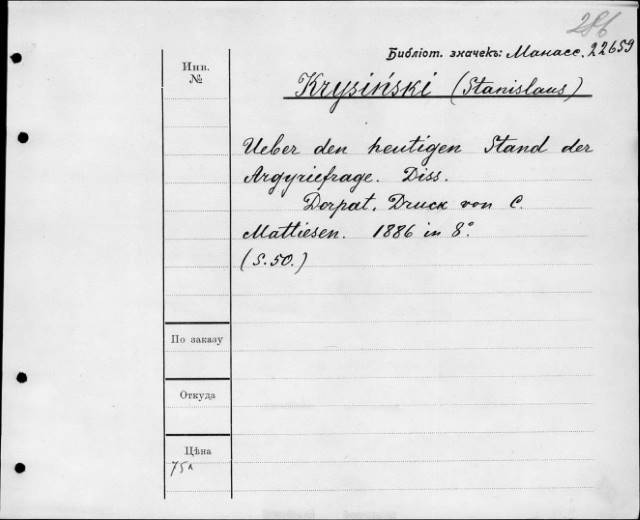 286
Библіот. значекъ: Манасс. 22659
Инв.
№
Krysiński (Stanislaus)
Ueber den heutigen Stand der
Argyriefrage. Diss.
Dorpat, Druck von C.
Mattiesen. 1886 in 8°.
(S. 50.)
По заказу
Откуда
Цѣна